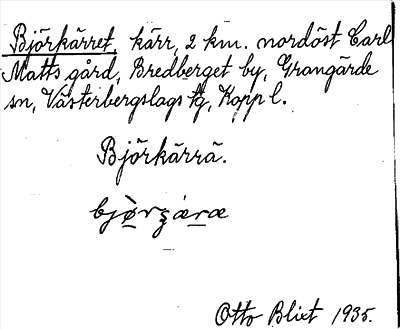 Björkärret, kärr, 2 km. nordöst Carl
Matts gård, Bredberget by, Grangärde
sn, Västerbergslags tg, Kopp l.
Björkärrä.
Otto Blixt 1935.